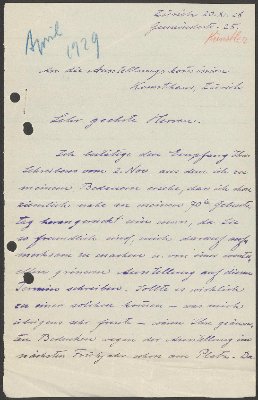 Zürich 20. XI. 28
Gemeindestr. 25.
Künstler
April 1929
An die Ausstellungskommission
Kunsthaus, Zürich
Sehr geehrte Herren.
Ich bestätige den Empfang Ihres
Schreibens vom 2. Nov aus dem ich zu
meinem Bedauern ersehe, dass ich schon
ziemlich nahe an meinen 70ten Geburts-
tag herangerückt sein muss, da Sie
so freundlich sind, mich darauf auf-
merksam zu machen u. von einer
grösseren Ausstellung auf diesen
Termin schreiben. Sollte es wirklich
zu einer solchen kommen – was mich
übrigens sehr freute – wären Ihre
Bedenken wegen der Ausstellung im
nächsten Frühjahr schon am Platz. Da